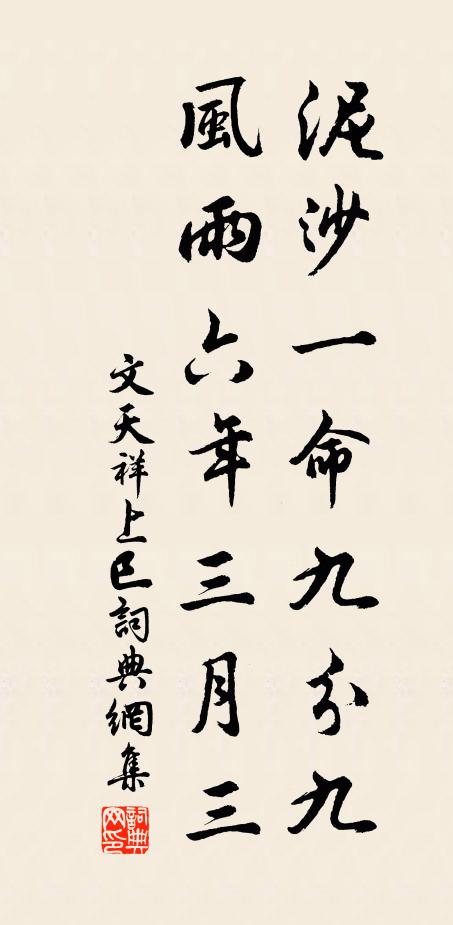 泥沙一命九分九
風雨六年三月三
文天祥上巳詞典網集
詞典網印